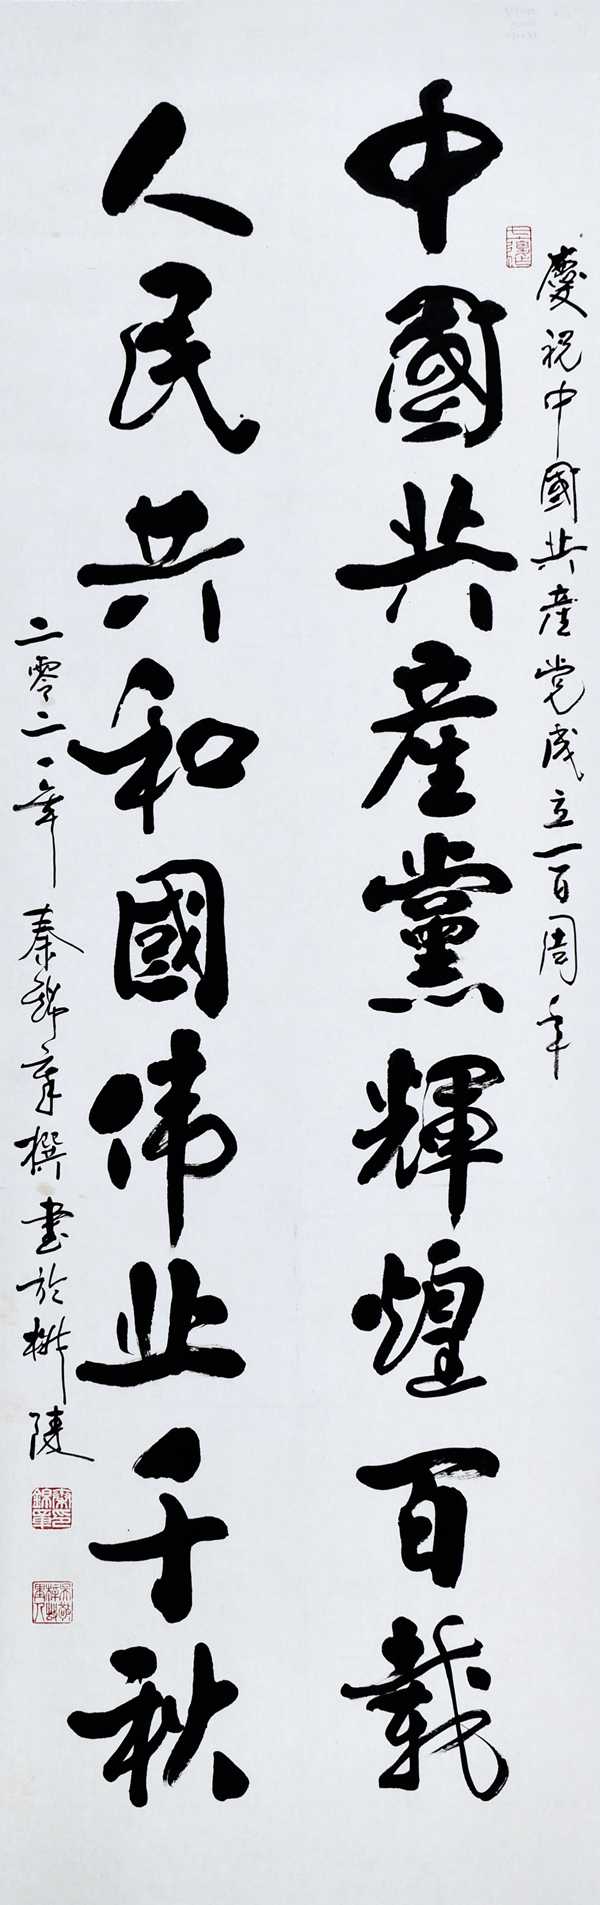 慶祝中國共産党成立一百周年
中國共産黨輝煌百載
人民共和國伟业千秋
二零二一年秦錦章撰書於樹陵